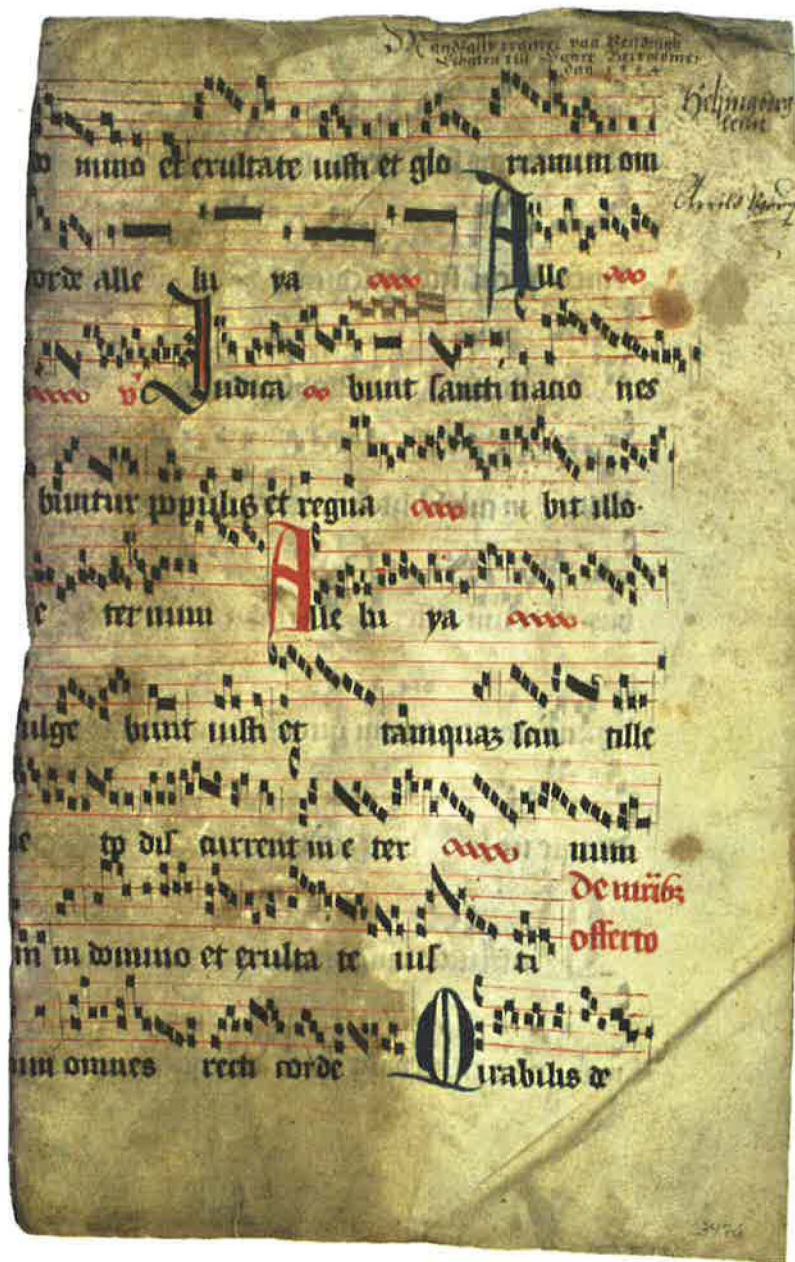 do mino et exultate iusti et glo riamini om
corde alle lu ya Alle
v Iudica bunt sancti natio nes
buntur populis et regna bit illo.
e ternum Alle lu ya
ulge bunt iusti et tamquaz scin tille
e tp dis current in e ter num
De mrībz
offerto
in domino et exulta te ius ti
um omnes recti corde Mirabilis de
3476